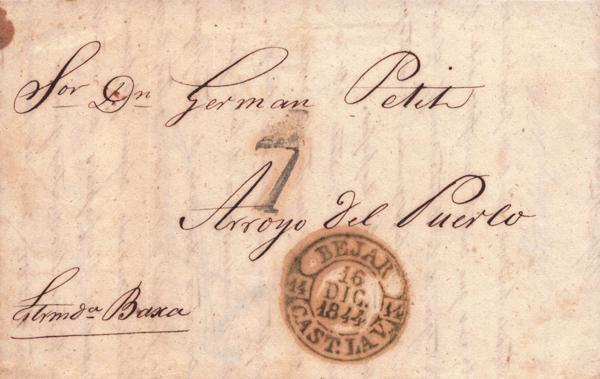 Sor Dn German Petit
7
Arroyo del Puerto
BEJAR
14 16 14
DIC.
1844
CAST. LA V.
Estremda Baxa